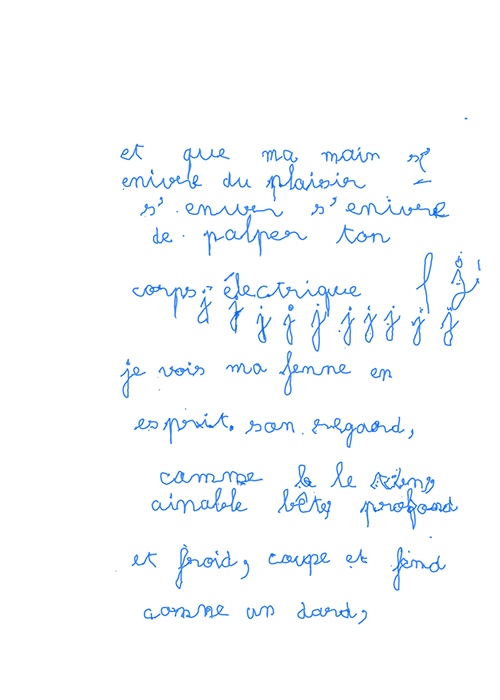 et que ma main s'
enivre du plaisir
s'enivrer s'enivre
de palper ton
corps électrique f j j
j j j j j j j j j j
je vois ma femme en
esprit. son regard,
comme le le tien,
aimable bête, profond
et froid, coupe et fend
comme un dard,